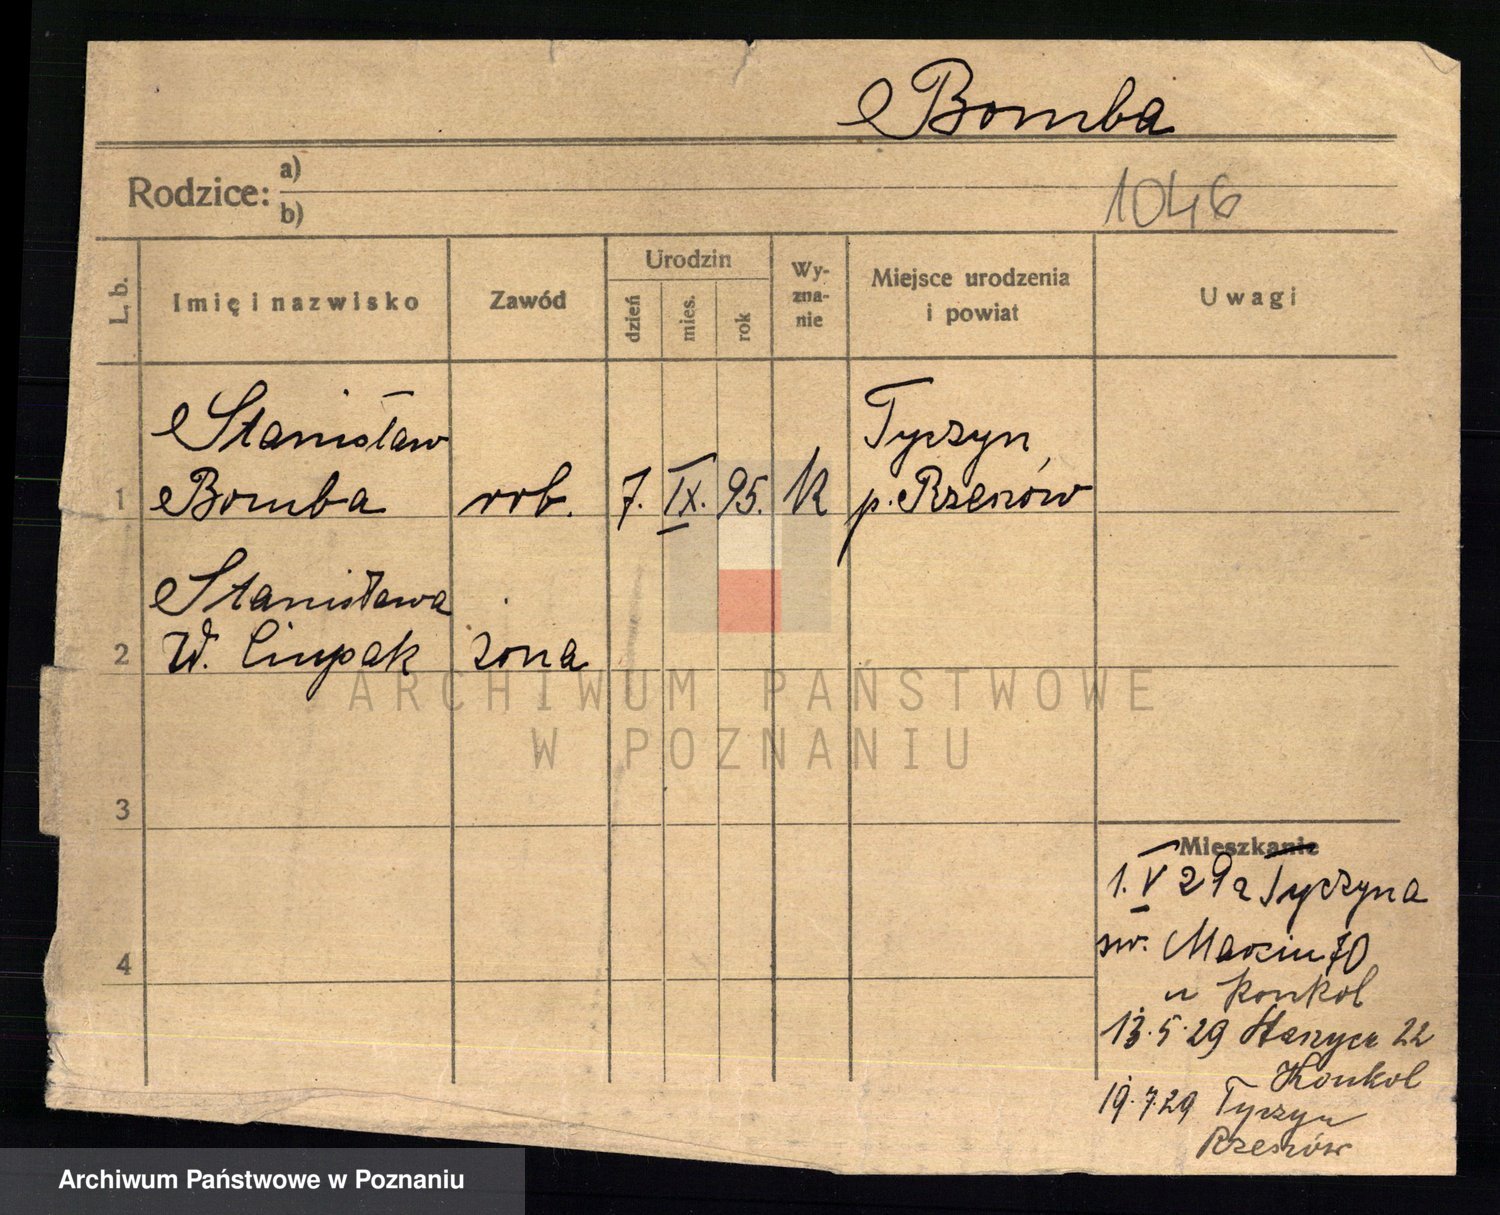 Bomba
Rodzice: a)
b)
1046
L. b.
Imię i nazwisko
Zawód
Urodzin
dzień
mies.
rok
Wy-
zna-
nie
Miejsce urodzenia
i powiat
Uwagi
Stanisław
Tyczyn
1 Bomba rob. 7. IX. 95. k p. Rzeszów
Stanisława
2 W. żona
ARCHIWUM PAŃSTWOWE
W POZNANIU
3
Mieszkanie
1. V 29 z Tyczyna
św. Marcin 70
4
u Konkol
13.5.29 22
Konkol
19.7.29 Tyczyn
Rzeszów
Archiwum Państwowe w Poznaniu